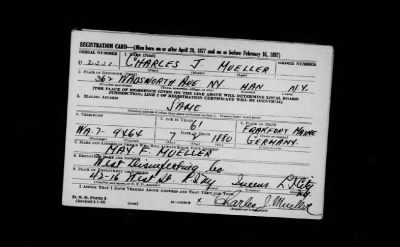 REGISTRATION CARD—(Men born on or after April 28, 1877 and on or before February 16, 1897)
SERIAL NUMBER 1. NAME (Print) ORDER NUMBER
U 2231 CHARLES J MUELLER
2. PLACE OF RESIDENCE (Print)
362 WADSWORTH AVE NY MAN N.Y.
[THE PLACE OF RESIDENCE GIVEN ON THE LINE ABOVE WILL DETERMINE LOCAL BOARD
JURISDICTION; LINE 2 OF REGISTRATION CERTIFICATE WILL BE IDENTICAL]
3. MAILING ADDRESS
SAME
4. TELEPHONE 5. AGE IN YEARS 6. PLACE OF BIRTH
61
WA. 7-9464 DATE OF BIRTH FRANKFORT MAINE
7 1880 GERMANY.
7. NAME AND ADDRESS OF
MAY F. MUELLER
8. EMPLOYER'S NAME AND
West Disinfecting Co
9. PLACE OF EMPLOYMENT OR BUSINESS
42-16 West St. L.I. City Queens L.I. City
I AFFIRM THAT I HAVE VERIFIED ABOVE ANSWERS AND THAT THEY ARE TRUE.
D. S. S. Form 1
x Charles J. Mueller